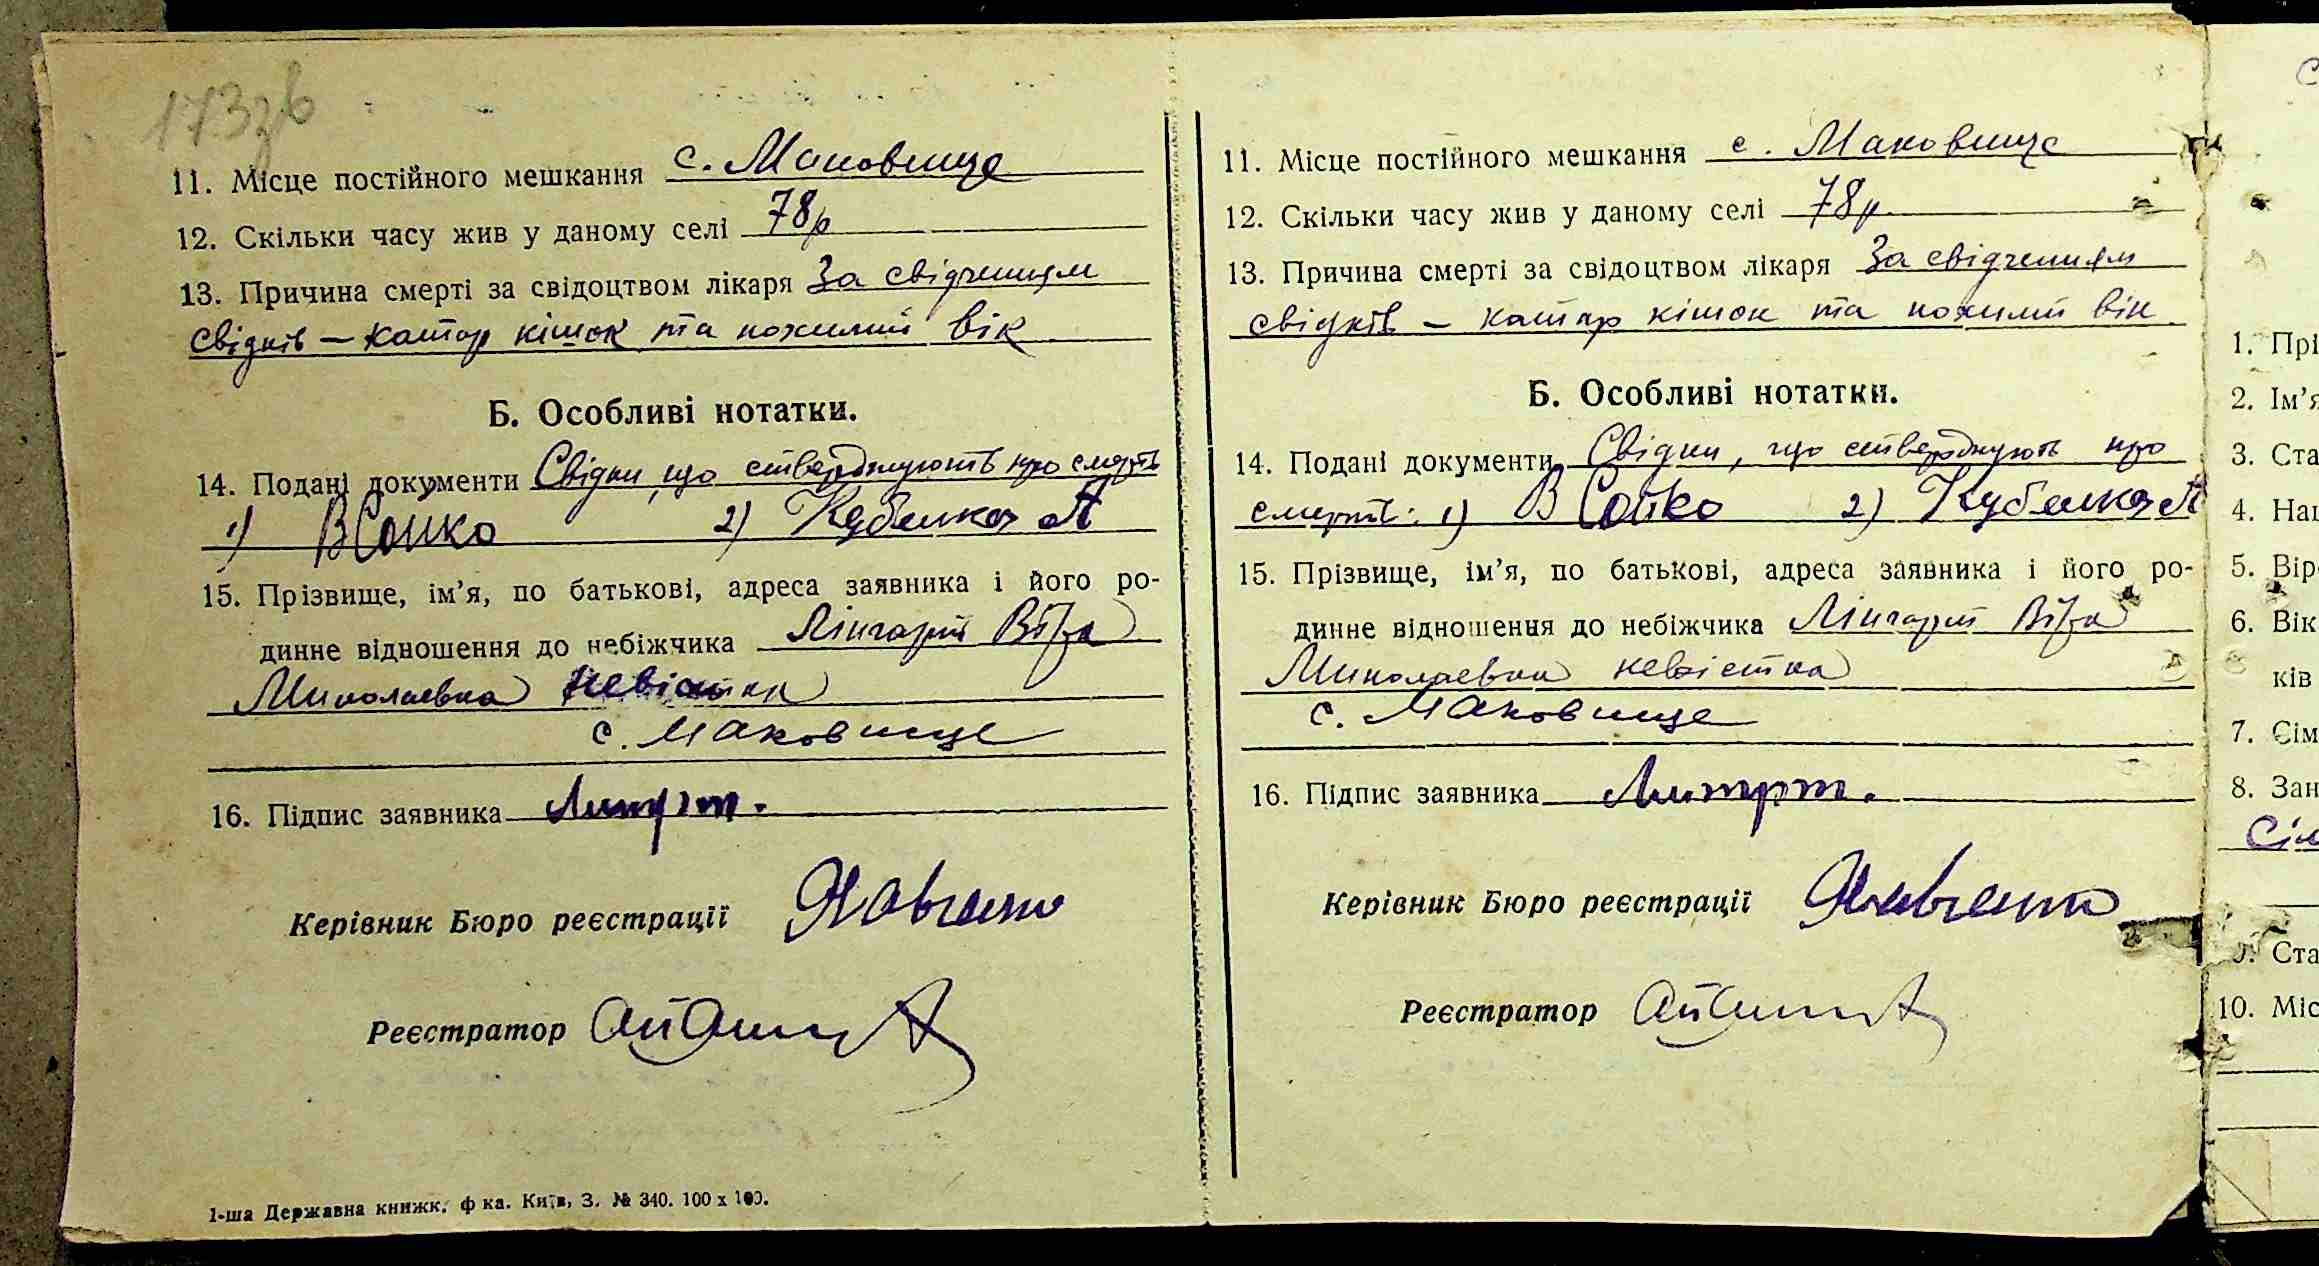 173зв
11. Місце постійного мешкання с. Маковище
12. Скільки часу жив у даному селі 78 р
13. Причина смерті за свідоцтвом лікаря За свідченням
свідків – катар кішок та похилий вік
Б. Особливі нотатки.
14. Подані документи Свідки, що стверджують про смерть
1) В Сойко 2)
15. Прізвище, ім’я, по батькові, адреса заявника і його ро-
динне відношення до небіжчика Віра
Миколаевна невістка
с. Маковище
16. Підпис заявника
Керівник Бюро реєстрації
Реєстратор
1-ша Державна книжк. ф ка. Київ, З. № 340. 100 х 100.
11. Місце постійного мешкання с. Маковище
12. Скільки часу жив у даному селі 78 р.
13. Причина смерті за свідоцтвом лікаря За свідченням
свідків – катар кішок та похилий вік
Б. Особливі нотатки.
14. Подані документи Свідки, що стверджують про
смерть: 1) В Сойко 2)
15. Прізвище, ім’я, по батькові, адреса заявника і його ро-
динне відношення до небіжчика Віра
Миколаевна невістка
с. Маковище
16. Підпис заявника
Керівник Бюро реєстрації
Реєстратор
1. Прі
2. Ім’я
3. Ста
4. Нац
5. Вір
6. Вік
ків
7. Сім
8. Зан
Сіл
9. Ста
10. Міс